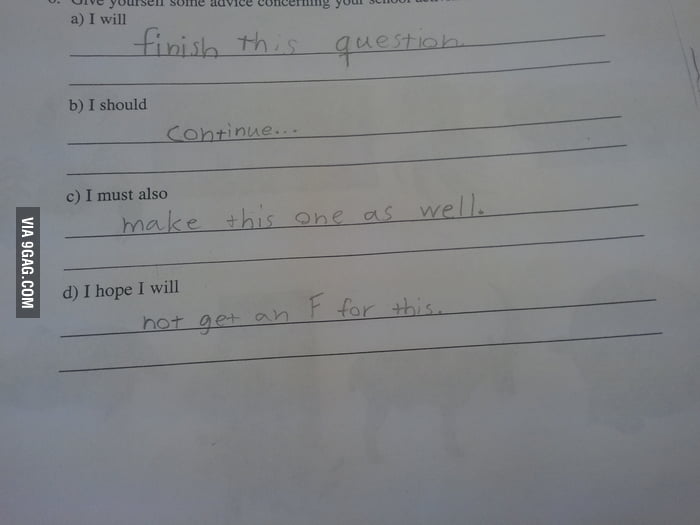 Give yourself some advice concerning your school
a) I will
finish this question
b) I should
continue...
c) I must also
make this one as well.
d) I hope I will
not get an F for this.
VIA 9GAG.COM